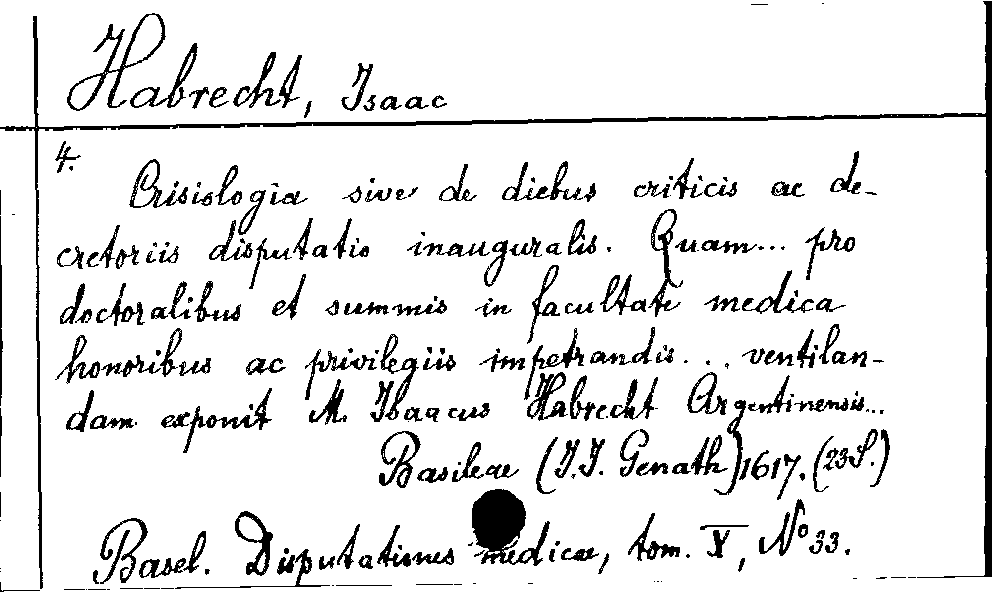 Habrecht, Isaac
4.
Crisiologia sive de diebus criticis ac de-
cretoriis disputatio inauguralis. Quam... pro
doctoralibus et summis in facultate medica
honoribus ac privilegiis impetrandis... ventilan-
dam exponit M. Isaacus Habrecht Argentinensis...
Basileae (J.J. Genath) 1617. (23 S.)
Basel. Disputationes medicae, tom. X, No 33.